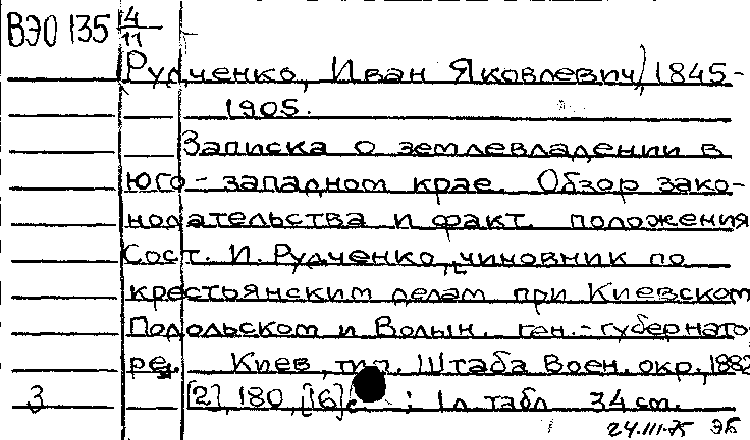 ВЭО 135 4/11
Рудченко, Иван Яковлевич, 1845-
1905.
Записка о землевладении в
Юго-западном крае. Обзор зако-
нодательства и факт. положения
Сост. И. Рудченко, чиновник по
крестьянским делам при Киевском
Подольском и Волын. ген.-губернато
ре. Киев, тип. Штаба Воен. окр., 1882
3 [2], 180, [16] с ; 1 л табл 34 cm.
24.III.75 ЭБ